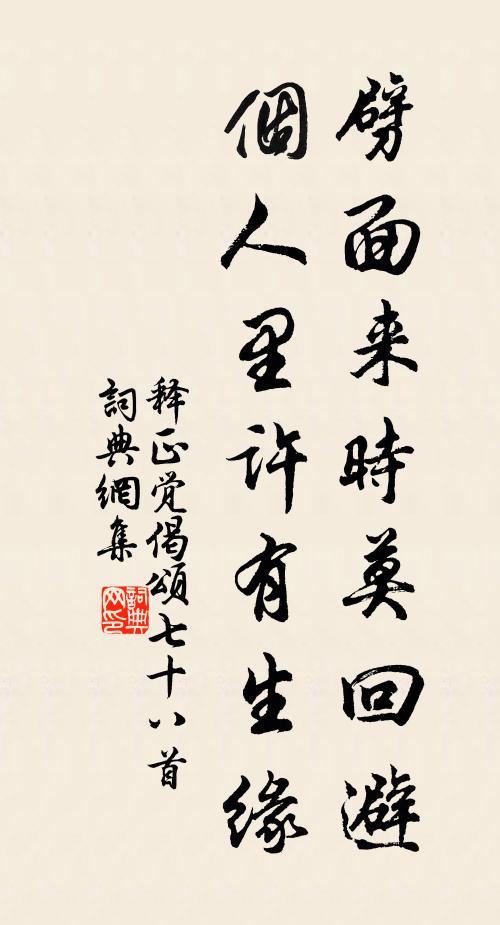 劈面来時莫回避
個人里許有生緣
释正覚偈頌七十八首
詞典網集
詞典网印